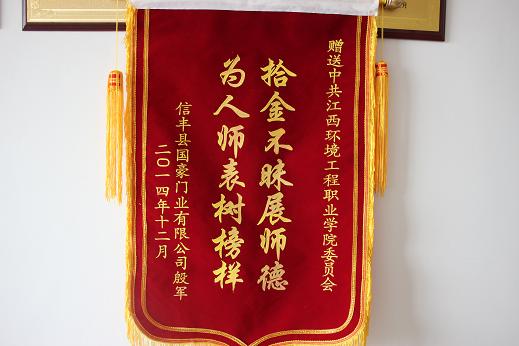 赠送中共江西环境工程职业学院委员会
拾金不昧展师德
为人师表树榜样
信丰县国豪门业有限公司殷军
二〇一四年十二月